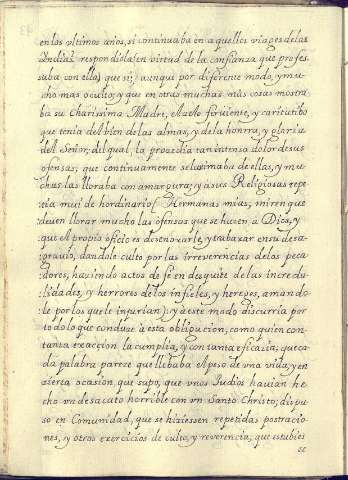 en los vltimos años, si continuaba en aquellos viages de las
Yndias respondiola (en virtud de la confianza que profes-
saba con ella) que si, aunqui por diferente modo, y mu-
cho mas oculto; y que en otras muchas mas cosas mostra-
ba su charissima Madre, Mazlo feruiente, y caritatibo
que tenia del bien de las almas, y de la honrra, y gloria
del Señor; del qual, la prozedia tan intenso dolor de sus
ofensas; que continuamente se laximaba de ellas, y mu-
chas las lloraba con amargura; y a sus Religiosas repe-
tia mui de hordinario (Hermanas mias, miren que
deuen llorar mucho las ofensas que se hazen à Dios, y
que el propio oficio es desenoxarle, y trabaxar en su desa-
grauio, dandole culto por las irreverencias de los peca-
dores, haziendo actos de fe en desquite de las incredu-
lidades, y herrores de los infieles, y hereges, amando-
le por los que le injurian), y à este modo discurria por
todo lo que conduze à esta obligacion; como quien con
tanta exaccion la cumplia, y con tanta eficazia; que ca-
da palabra pareze que llebaba el peso de vna vida, y en
zierta ocasion que supo, que vnos Judios hauian he-
cho vn desacato horrible con vn Santo Christo; dispu-
so en Comunidad, que se hiziessen repetidas postracio-
nes, y otros exercicios de culto, y reverencia; que estubies